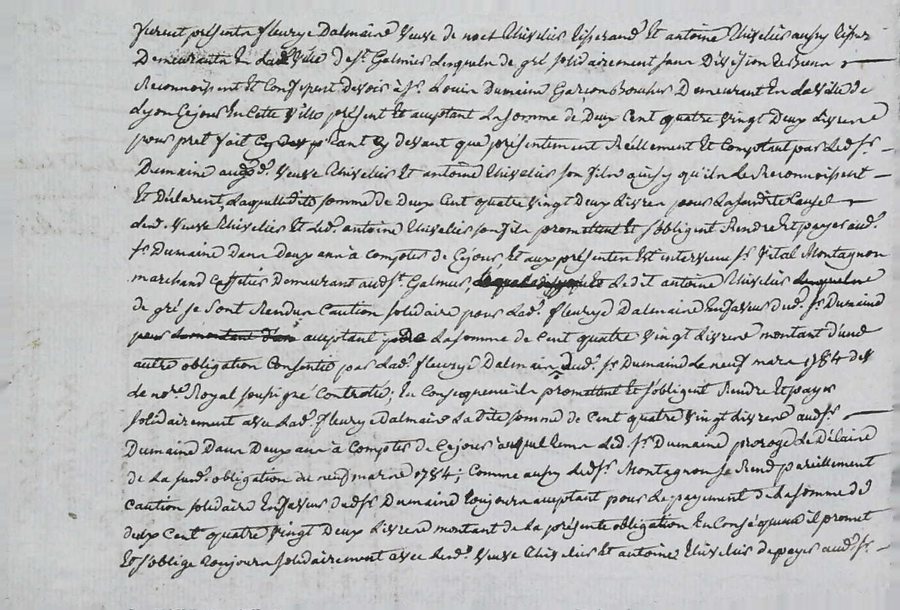 furent présents fleurye Dalmaine veuve de noel Thivelier tisserand Et antoine Thivelier aussy tisser
Demeurants En lad. Ville de st. Galmier Lesquels de gré solidairement sans Division ni
Reconnoissent Et Confessent Devoir à sr. Louis Dumaine Garcon Boucher Demeurant En La ville de
Lyon Cejour En Cette Ville présent Et acceptant La somme de Deux Cent quatre vingt Deux Livres
pour pret fait Cy devant que présentement Réellement Et Comptant par Led. sr.
Dumaine auxd. veuve Thivelier Et antoine Thivelier son fils ainsy qu'ils Le Reconnoissent
Et Déclarent, Laquelle dite somme de Deux Cent quatre vingt Deux Livres pour La susdite Cause
Lad. veuve Thivelier Et Led. antoine Thivelier son fils promettent Et s'obligent Rendre Et payer aud.
sr. Dumaine Dans Deux ans à Compter de Cejour, Et aux présentes Est intervenu sr. Vital Montagnon
marchand Cafetier Demeurant aud. st. Galmier, Le dit antoine Thivelier Lesquels
de gré se sont Rendus Caution solidaire pour Lad. fleurye Dalmaine En faveur dud. sr. Dumaine
acceptant La somme de Cent quatre vingt Livres montant d'une
autre obligation Consentie par Lad. fleurye Dalmaine aud. sr. Dumaine Le neuf mars 1784 devt
Le nore. Royal soussigné Controllé; En Consequence ils promettent Et s'obligent Rendre Et payer
solidairement avec Lad. fleurye Dalmaine La dite somme de Cent quatre vingt Livres aud. sr.
Dumaine Dans Deux ans à Compter de Cejour auquel terme Led. sr. Dumaine proroge Le Délaire
de La susd. obligation du neuf mars 1784; Comme aussy Led. sr. Montagnon se Rend pareillement
Caution solidaire En faveur dud. sr. Dumaine toujours acceptant pour Le payement de La somme de
deux Cent quatre vingt Deux Livres montant de La présente obligation En Conséquence il promet
Et s'oblige toujours solidairement avec Lesd. veuve Thivelier Et antoine Thivelier de payer aud. sr.